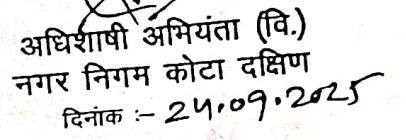 अधिशाषी अभियंता (वि.)
नगर निगम कोटा दक्षिण
दिनांक :- 24.09.2025